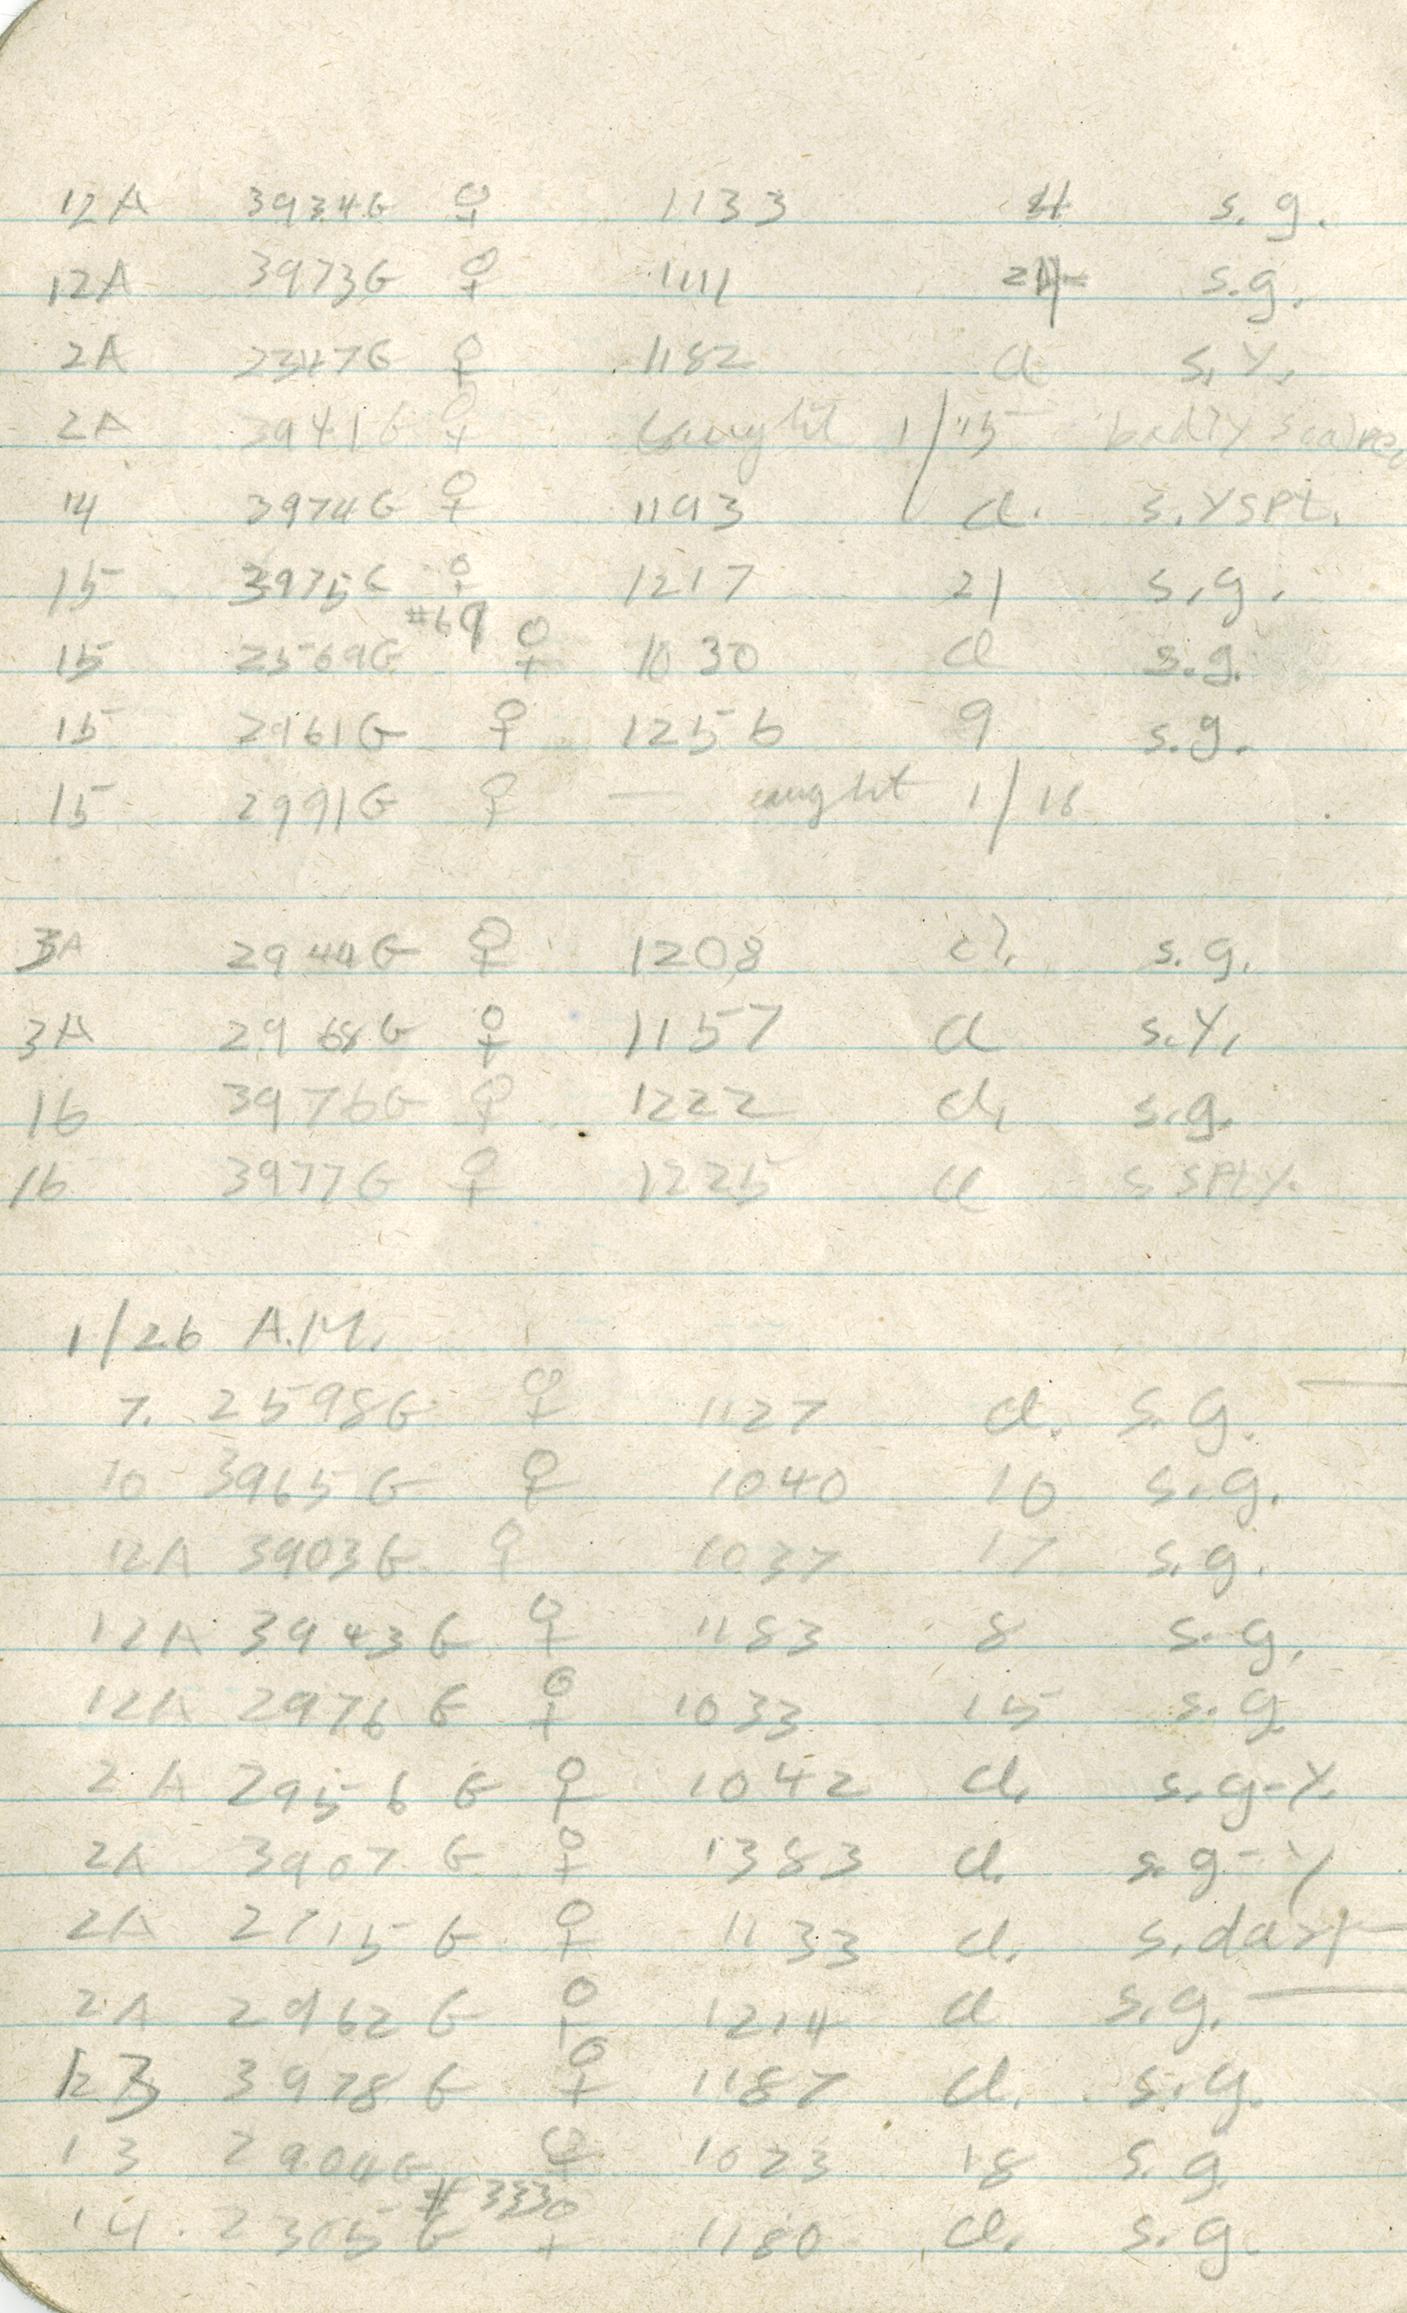 12A 3934G ♀ 1133 s.g.
12A 3973G ♀ 1111 s.g.
2A 2347G ♀ 1182 cl s.Y.
2A 3941G ♀ caught 1/15 badly
14 3974G ♀ 1193 cl. s.YSPt.
15 3975G ♀ 1217 21 s.g.
15 2569G #69 ♀ 1030 cl s.g.
15 2961G ♀ 1256 9 s.g.
15 2991G ♀ — caught 1/18
3A 2944G ♀ 1208 cl. s.g.
3A 2968G ♀ 1157 cl s.Y.
16 3976G ♀ 1222 cl. s.g.
16 3977G ♀ 1225 cl s SPtY.
1/26 A.M.
7. 2598G ♀ 1127 cl. s.g. —
10 3965G ♀ 1040 10 s.g.
12A 3903G ♀ 1037 17 s.g.
12A 3943G ♀ 1183 8 s.g.
12A 2976G ♀ 1033 15 s.g
2A 2956G ♀ 1042 cl. s.g-Y.
2A 3907G ♀ 1383 cl. s.g-Y
2A 2715G ♀ 1133 cl. s.dark
2A 2962G ♀ 1214 cl s.g. —
3978G ♀ 1187 cl. s.g.
13 2904G ♀ 1023 18 s.g
14. 2305G #333 ♀ 1180 cl. s.g.